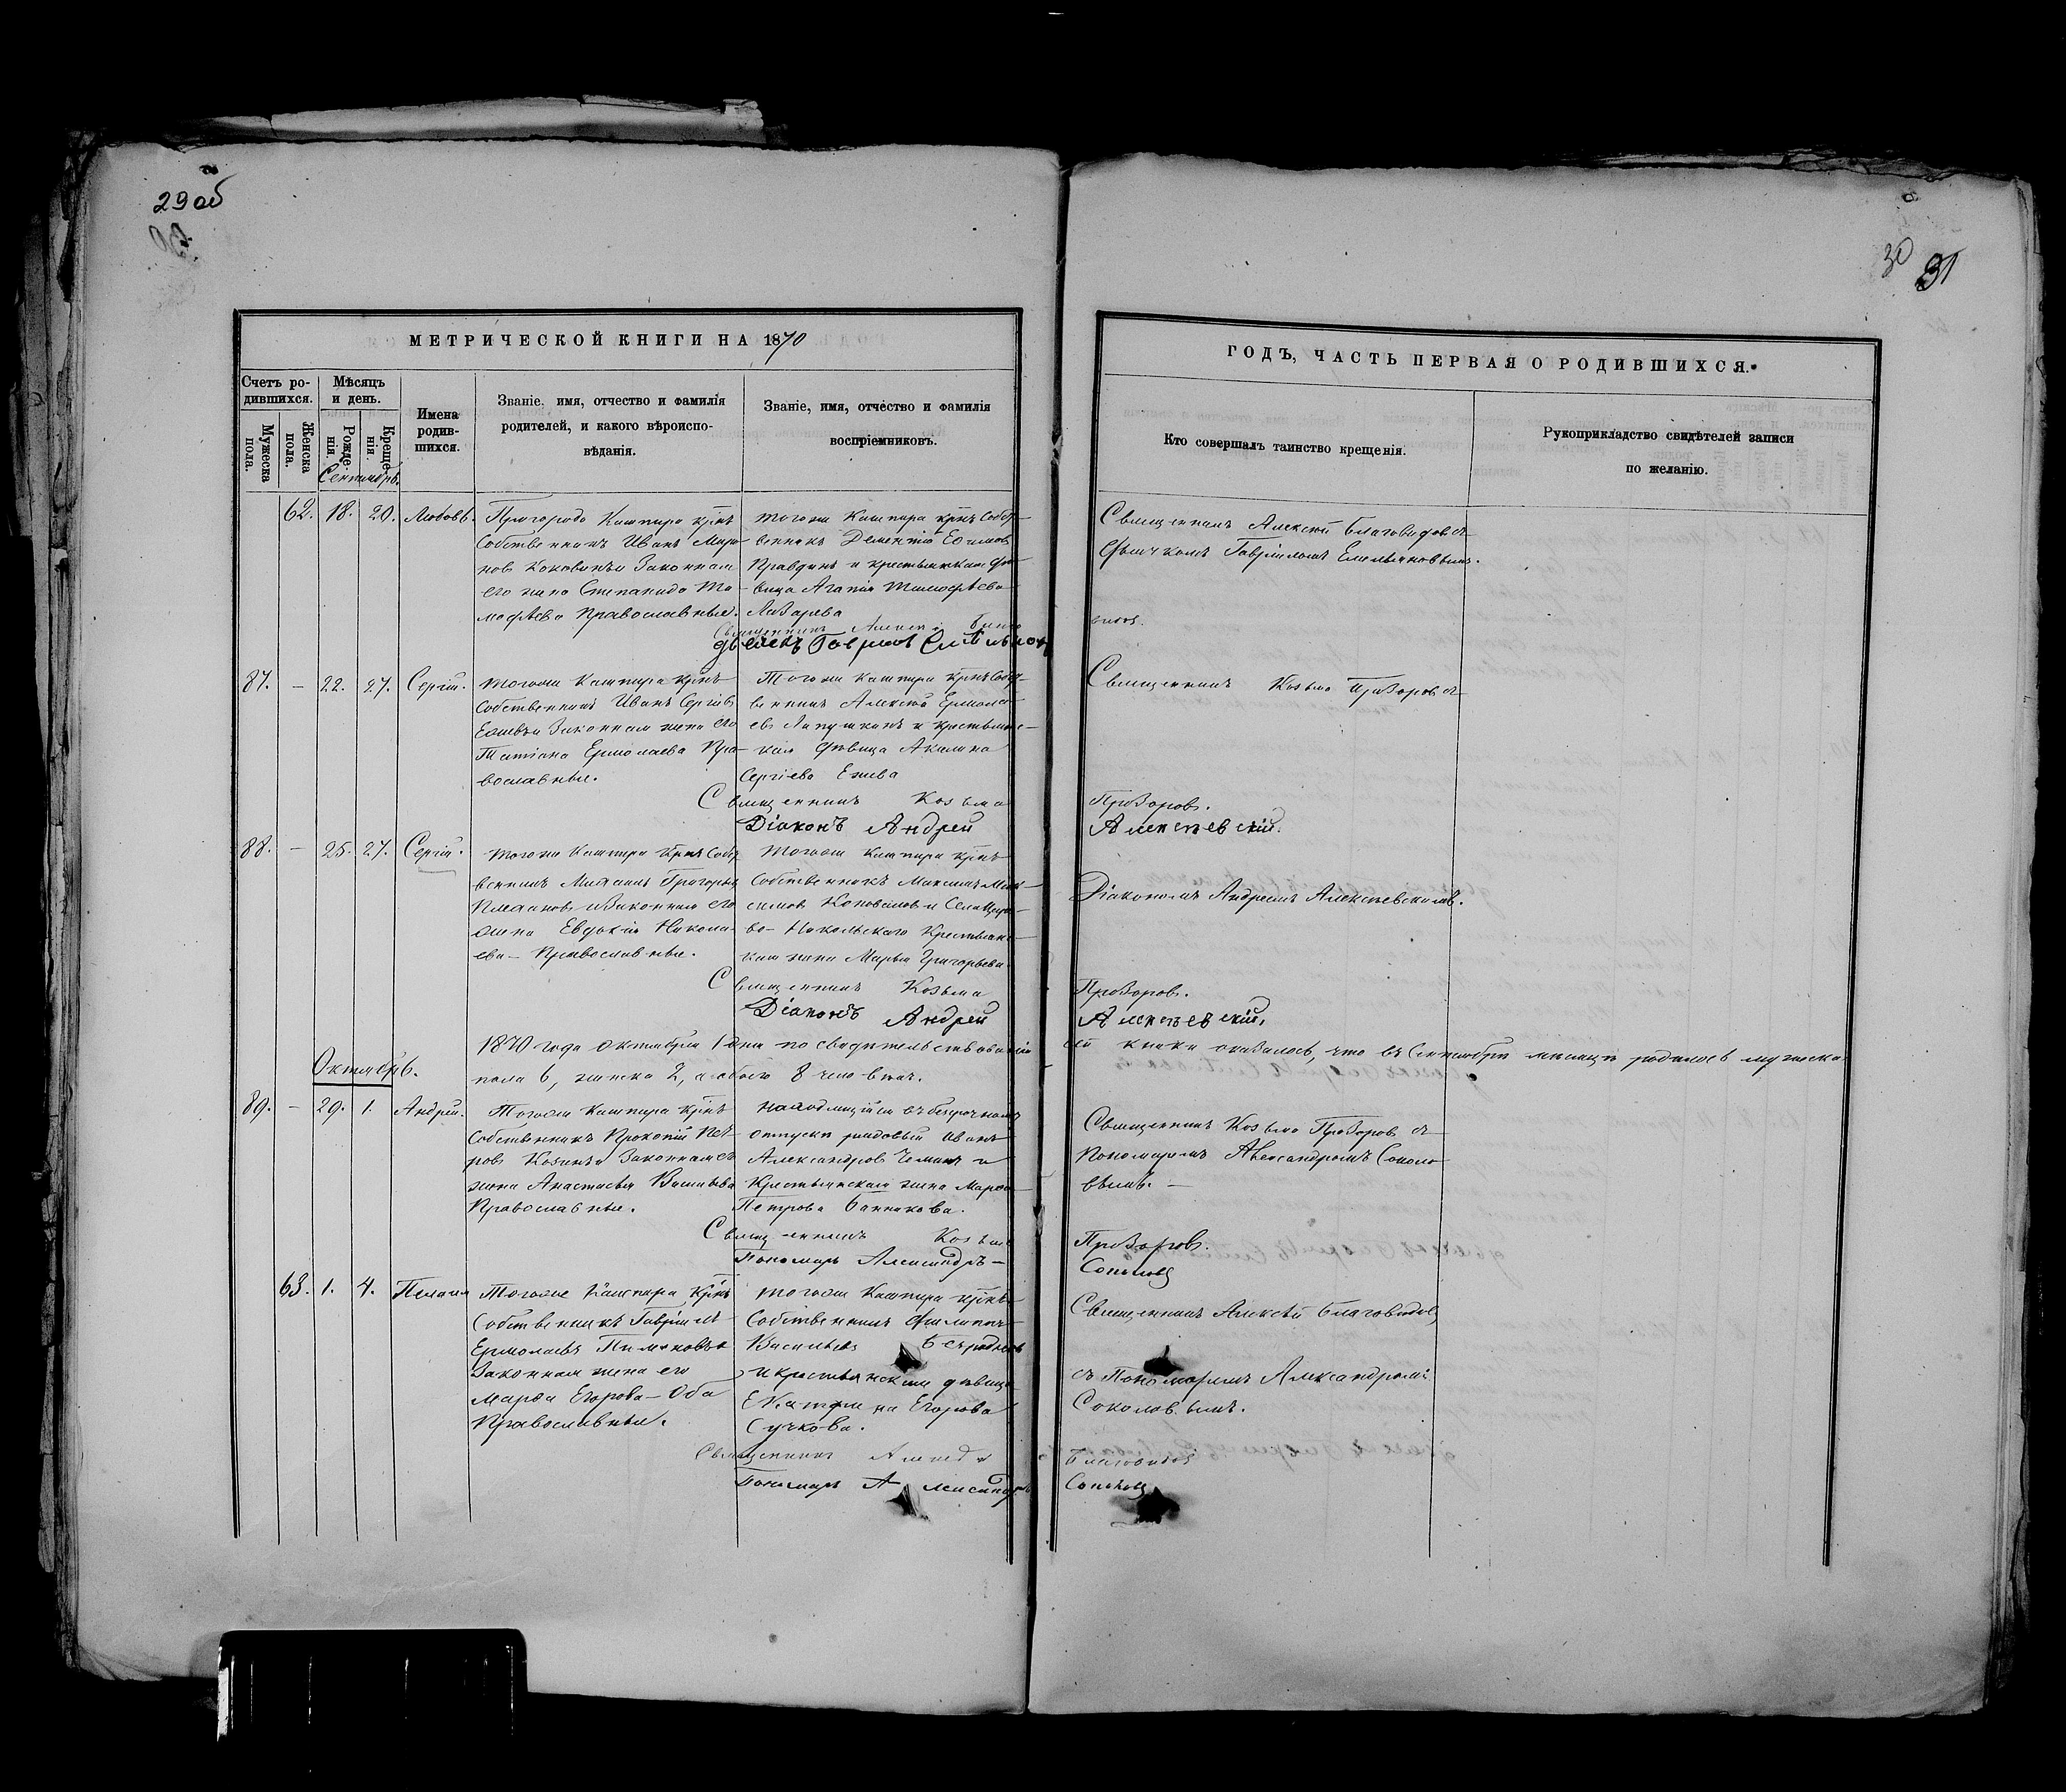 29 об
30 31
МЕТРИЧЕСКОЙ КНИГИ НА 1870
ГОДЪ, ЧАСТЬ ПЕРВАЯ О РОДИВШИХСЯ.
Счетъ ро-
дившихся.
Мужеска
пола.
Женска
пола.
Мѣсяцъ
и день.
Рожде-
нія.
Креще-
нія.
Имена
родив-
шихся.
Званіе, имя, отчество и фамилія
родителей, и какого вѣроиспо-
вѣданія.
Званіе, имя, отчество и фамилія
воспріемниковъ.
Кто совершалъ таинство крещенія.
Рукоприкладство свидѣтелей записи
по желанію.
Сентябрь.
62. 18. 20. Любовь.
Пригорода Кашпира крнъ
Собственникъ Иванъ Миро
новъ законная
его жена Степанида Ти
мофѣева православные.
тогоже Кашпира крнъ Собст-
венникъ Дементій Ефимовъ
Правдинъ и крестьянская дѣ-
вица Агапія Тимофѣева
Лазарева
Священникъ Алексѣй Благовидовъ съ
Дьячкомъ Гавріиломъ Емельяновымъ.
Священникъ Алексѣй Благо
видовъ.
Дьячекъ Гавріилъ Емельяновъ
87. — 22. 27. Сергій.
тогоже Кашпира крнъ
Собственникъ Иванъ Сергѣевъ
Ежевъ и законная жена его
Татіана Ермолаева Пра-
вославные.
Тогоже Кашпира крнъ Собст-
венникъ Алексѣй Ермола-
евъ Лапушкинъ и крестьянс-
кая дѣвица Акилина
Сергіева Ежева
Священникъ Козьма Прозоровъ съ
Священникъ Козьма Прозоровъ.
Діаконъ Андрей Алексѣевскій.
88. — 25. 27. Сергій.
тогоже Кашпира крнъ Собст
венникъ Михаилъ Григорьевъ
и законная его
жена Евдокія Никола-
ева — Православные.
Тогоже Кашпира крнъ
Собственникъ Максимъ Мак-
симовъ Коноваловъ и Села Царе-
во-Никольскаго Крестьянс-
кая жена Марья Григорьева
Діакономъ Андреемъ Алексѣевскимъ.
Священникъ Козьма Прозоровъ.
Діаконъ Андрей Алексѣевскій.
1870 года Октября 1 дня по свидѣтельствованіи сей книги оказалось, что въ Сентябрѣ мѣсяцѣ родилось мужеска
пола 6, женска 2, а обоего 8 человѣкъ.
Октябрь.
89. — 29. 1. Андрей.
Тогоже Кашпира крнъ
Собственникъ Прокопій Пет-
ровъ законная его
жена Анастасія Васильева
Православные.
Находящійся въ безсрочномъ
отпуску рядовый Иванъ
Александровъ и
Крестьянская жена Марѳа
Петрова Банникова.
Священникъ Козьма Прозоровъ съ
Пономаремъ Александромъ Соколо
вымъ. —
Священникъ Козьма Прозоровъ.
Пономарь Александръ — Соколовъ
63. 1. 4. Пелагія
Тогоже Кашпира Крнъ
Собственникъ Гавріилъ
Ермолаевъ
Законная жена его
Марѳа Егорова — Оба
Православные.
тогоже Кашпира крнъ
Собственникъ Филиппъ
Васильевъ
и крестьянская дѣвица
Екатерина Егорова
Сучкова.
Священникъ Алексѣй Благовидовъ
съ Пономаремъ Александромъ
Соколовымъ.
Священникъ Алексѣй Благовидовъ
Пономарь Александръ Соколовъ